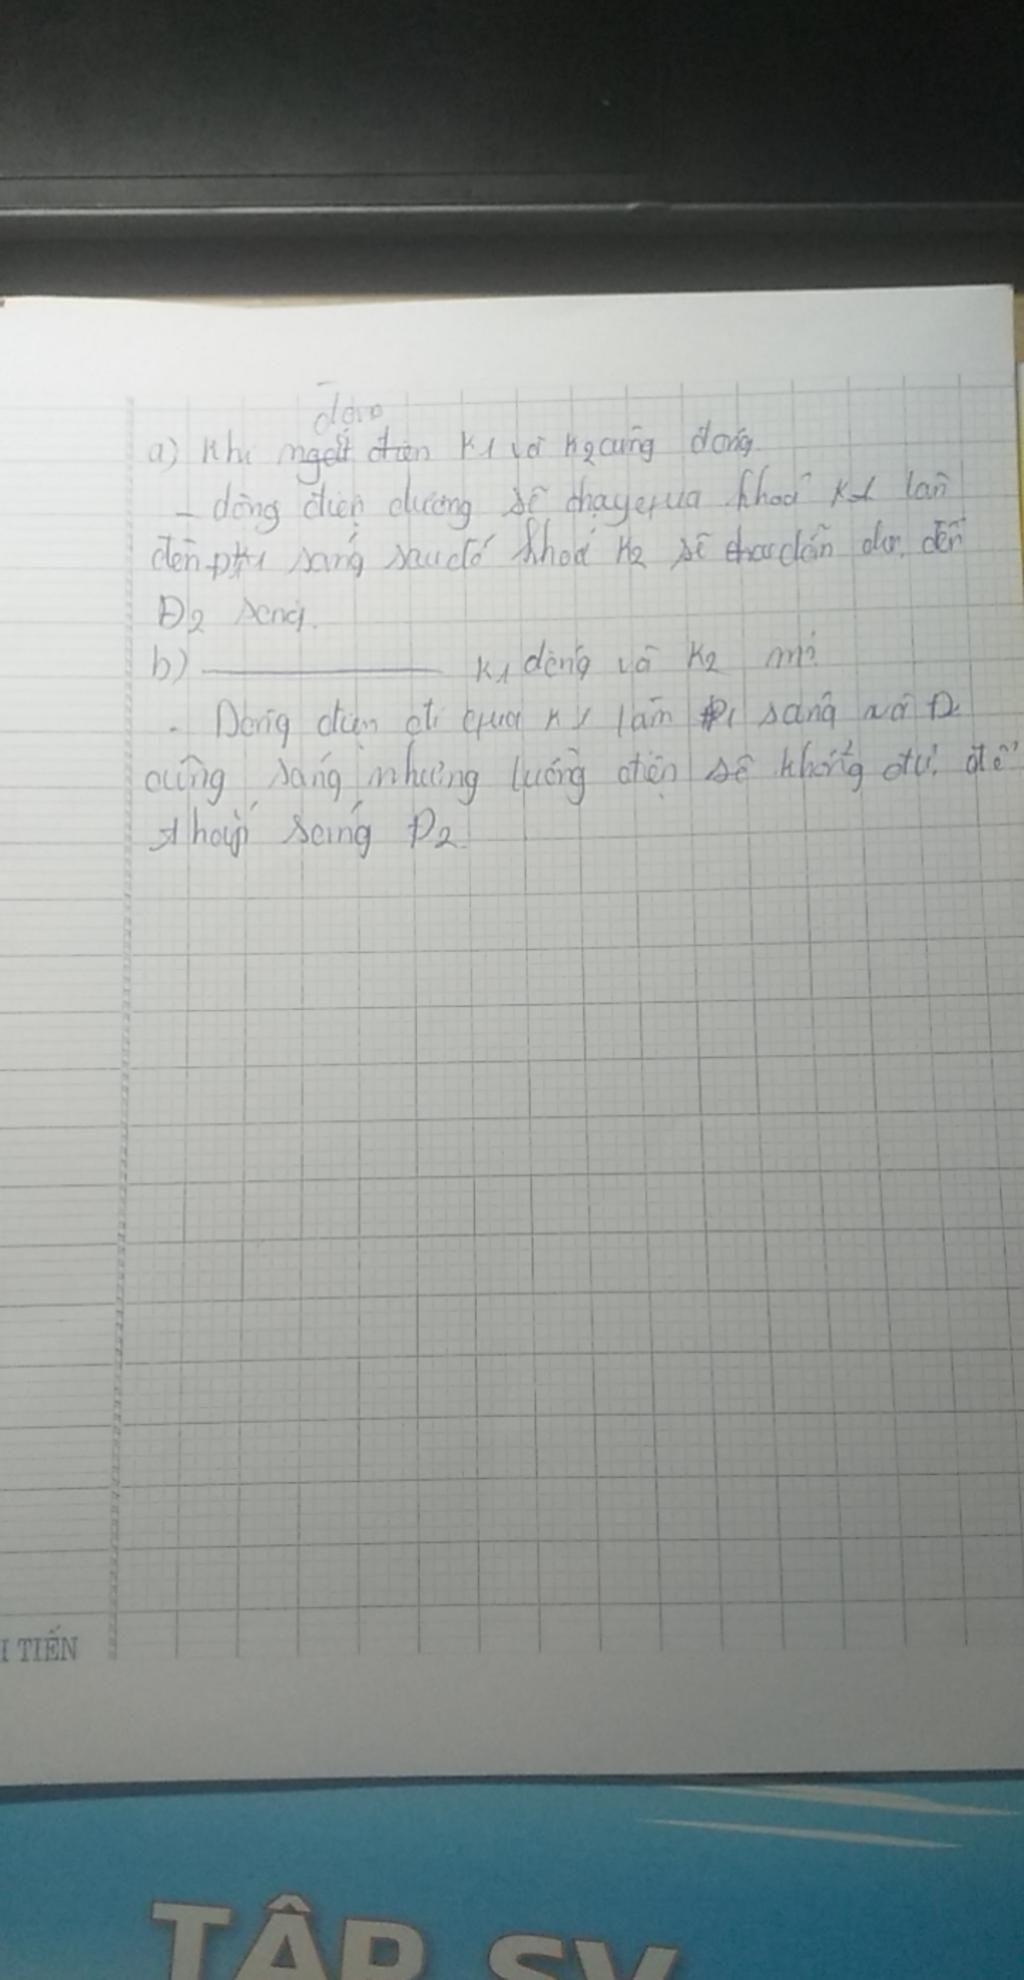 đóng
a) Khi ngắt điện K1 và K2 cùng đóng
- dòng điện dương sẽ chạy qua khoá K1 làm
đèn Đ1 sáng sau đó khoá K2 sẽ dẫn đến đèn
Đ2 sáng.
b) K1 đóng và K2 mở
- Dòng điện đi qua K1 làm Đ1 sáng và Đ2
cũng sáng nhưng luồng điện sẽ không đủ để
sáng Đ2
I TIẾN
TẬP SV